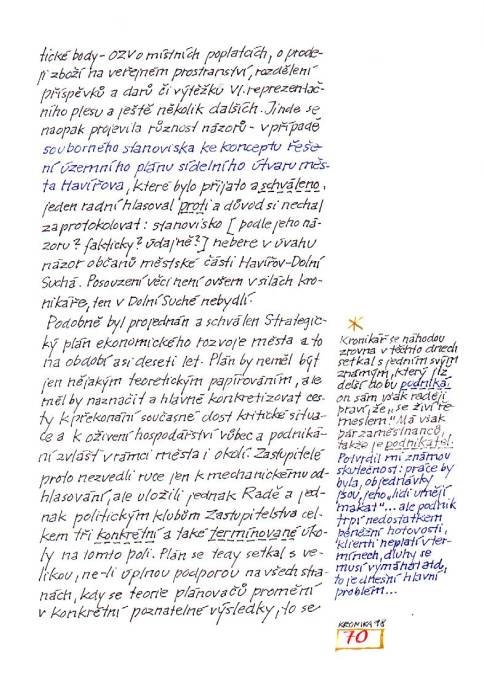 tické body - OZV o místních poplatcích, o prode-
ji zboží na veřejném prostranství, rozdělení
příspěvků a darů či výtěžku VI. reprezentač-
ního plesu a ještě několik dalších. Jinde se
naopak projevila různost názorů - v případě
souborného stanoviska ke konceptu řeše-
ní územního plánu sídelního útvaru měs-
ta Havířova, které bylo přijato a schváleno,
jeden radní hlasoval proti a důvod si nechal
zaprotokolovat: stanovisko [podle jeho ná-
zoru? fakticky? údajně?] nebere v úvahu
názor občanů městské části Havířov-Dolní
Suchá. Posouzení věci není ovšem v silách kro-
nikáře, ten v Dolní Suché nebydlí.
Podobně byl projednán a schválen Strategic-
ký plán ekonomického rozvoje města a to
na období asi deseti let. Plán by neměl být
jen nějakým teoretickým papírováním, ale
měl by naznačit a hlavně konkretizovat ces-
ty k překonání současné dost kritické situa-
ce a k oživení hospodářství vůbec a podniká-
ní zvlášť v rámci města i okolí. Zastupitelé
proto nezvedli ruce jen k mechanickému od-
hlasování, ale uložili jednak Radě a jed-
nak politickým klubům Zastupitelstva cel-
kem tři konkrétní a také termínované úko-
ly na tomto poli. Plán se tedy setkal s ve-
likou, ne-li úplnou podporou na všech stra-
nách, kdy se teorie plánovačů promění
v konkrétní poznatelné výsledky, to se
Kronikář se náhodou
zrovna v těchto dnech
setkal s jedním svým
známým, který již
delší dobu podniká,
on sám však raději
praví, že „se živí ře-
meslem." Má však
pár zaměstnanců,
takže je podnikatel.
Potvrdil mi známou
skutečnost: práce by
byla, objednávky
jsou, jeho „lidi umějí
makat"... ale podnik
trpí nedostatkem
běžnění hotovosti,
klienti neplatí v ter-
mínech, dluhy se
musí vymáhat atd,
to je dnešní hlavní
problém...
KRONIKA 98
70